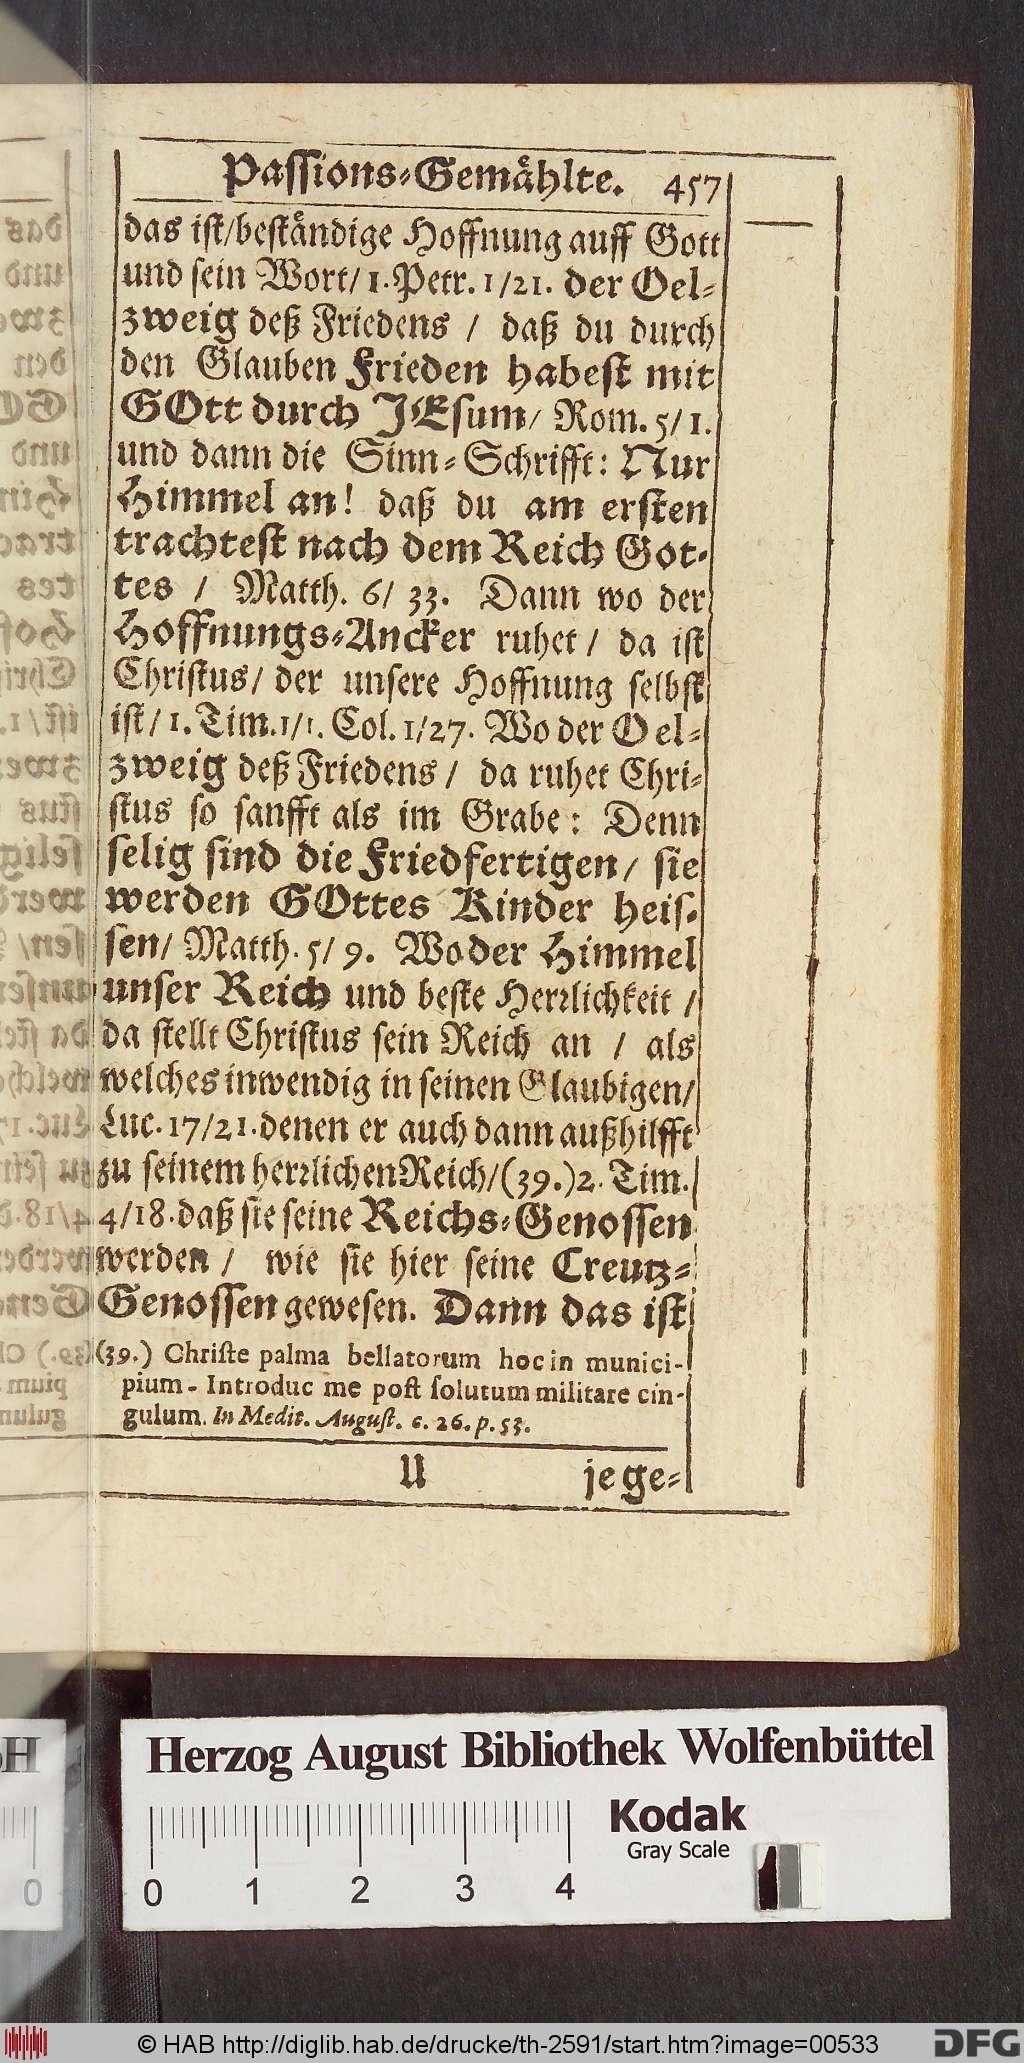 Passions-Gemählte. 457
das ist/beständige Hoffnung auff Gott
und sein Wort/ 1. Petr. 1/21. der Oel-
zweig deß Friedens / daß du durch
den Glauben Frieden habest mit
GOtt durch JEsum/ Rom. 5/1.
und dann die Sinn-Schrifft: Nur
Himmel an! daß du am ersten
trachtest nach dem Reich Got-
tes / Matth. 6/ 33. Dann wo der
Hoffnungs-Ancker ruhet / da ist
Christus/ der unsere Hoffnung selbst
ist/ 1. Tim. 1/1. Col. 1/27. Wo der Oel-
zweig deß Friedens / da ruhet Chri-
stus so sanfft als im Grabe: Denn
selig sind die Friedfertigen/ sie
werden GOttes Kinder heis-
sen/ Matth. 5/ 9. Wo der Himmel
unser Reich und beste Herrlichkeit /
da stellt Christus sein Reich an / als
welches inwendig in seinen Glaubigen/
Luc. 17/21. denen er auch dann außhilfft
zu seinem herrlichen Reich/ (39.) 2. Tim.
4/18. daß sie seine Reichs-Genossen
werden / wie sie hier seine Creutz-
Genossen gewesen. Dann das ist
(39.) Christe palma bellatorum hoc in munici-
pium - Introduc me post solutum militare cin-
gulum. In Medit. August. c. 26. p. 53.
U jege-
Herzog August Bibliothek Wolfenbüttel
Kodak
Gray Scale
0 1 2 3 4
0
© HAB http://diglib.hab.de/drucke/th-2591/start.htm?image=00533
DFG